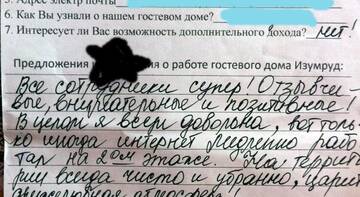 5. Адрес электр почты
6. Как Вы узнали о нашем гостевом доме?
7. Интересует ли Вас возможность дополнительного дохода? нет!
Предложения и о работе гостевого дома Изумруд:
Все сотрудники супер! Отзывчи-
вые, внимательные и позитивные!
В целом я всем довольна, вот толь-
ко иногда интернет медленно рабо-
тал на 2ом этаже. На террит
рии всегда чисто и убранно, царит
дружелюбная атмосфера!